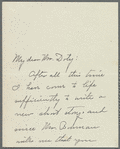 My dear Mr. Doty
After all this time
I have come to life
sufficiently to write a
new short story; and
since Mr.
tells me that you